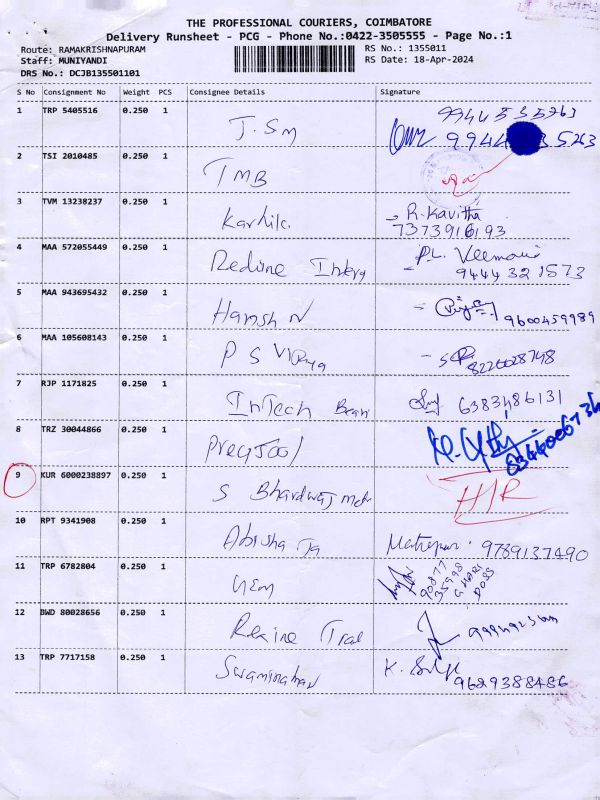 THE PROFESSIONAL COURIERS, COIMBATORE
Delivery Runsheet - PCG - Phone No.:0422-3505555 - Page No.:1
Route: RAMAKRISHNAPURAM RS No.: 1355011
Staff: MUNIYANDI RS Date: 18-Apr-2024
DRS No.: DCJB135501101
S No Consignment No Weight PCS Consignee Details Signature
9944535263
1 TRP 5405516 0.250 1 J. SM 9944 5263
2 TSI 2010485 0.250 1 TMB
3 TVM 13238237 0.250 1 R. Kavitha
7373916193
4 MAA 572055449 0.250 1 Redline P.L.
9444321573
5 MAA 943695432 0.250 1 Harish N 9600459989
6 MAA 105608143 0.250 1 P S 8220028748
7 RJP 1171825 0.250 1 InTech 6383486131
8 TRZ 30044866 0.250 1
9 KUR 6000238897 0.250 1 S Bhardwaj H/R
10 RPT 9341908 0.250 1 9789137490
11 TRP 6782804 0.250 1 90877
35998
G. HARI
DOSS
12 BWD 80028656 0.250 1
13 TRP 7717158 0.250 1 Swaminathan K.
9629388486